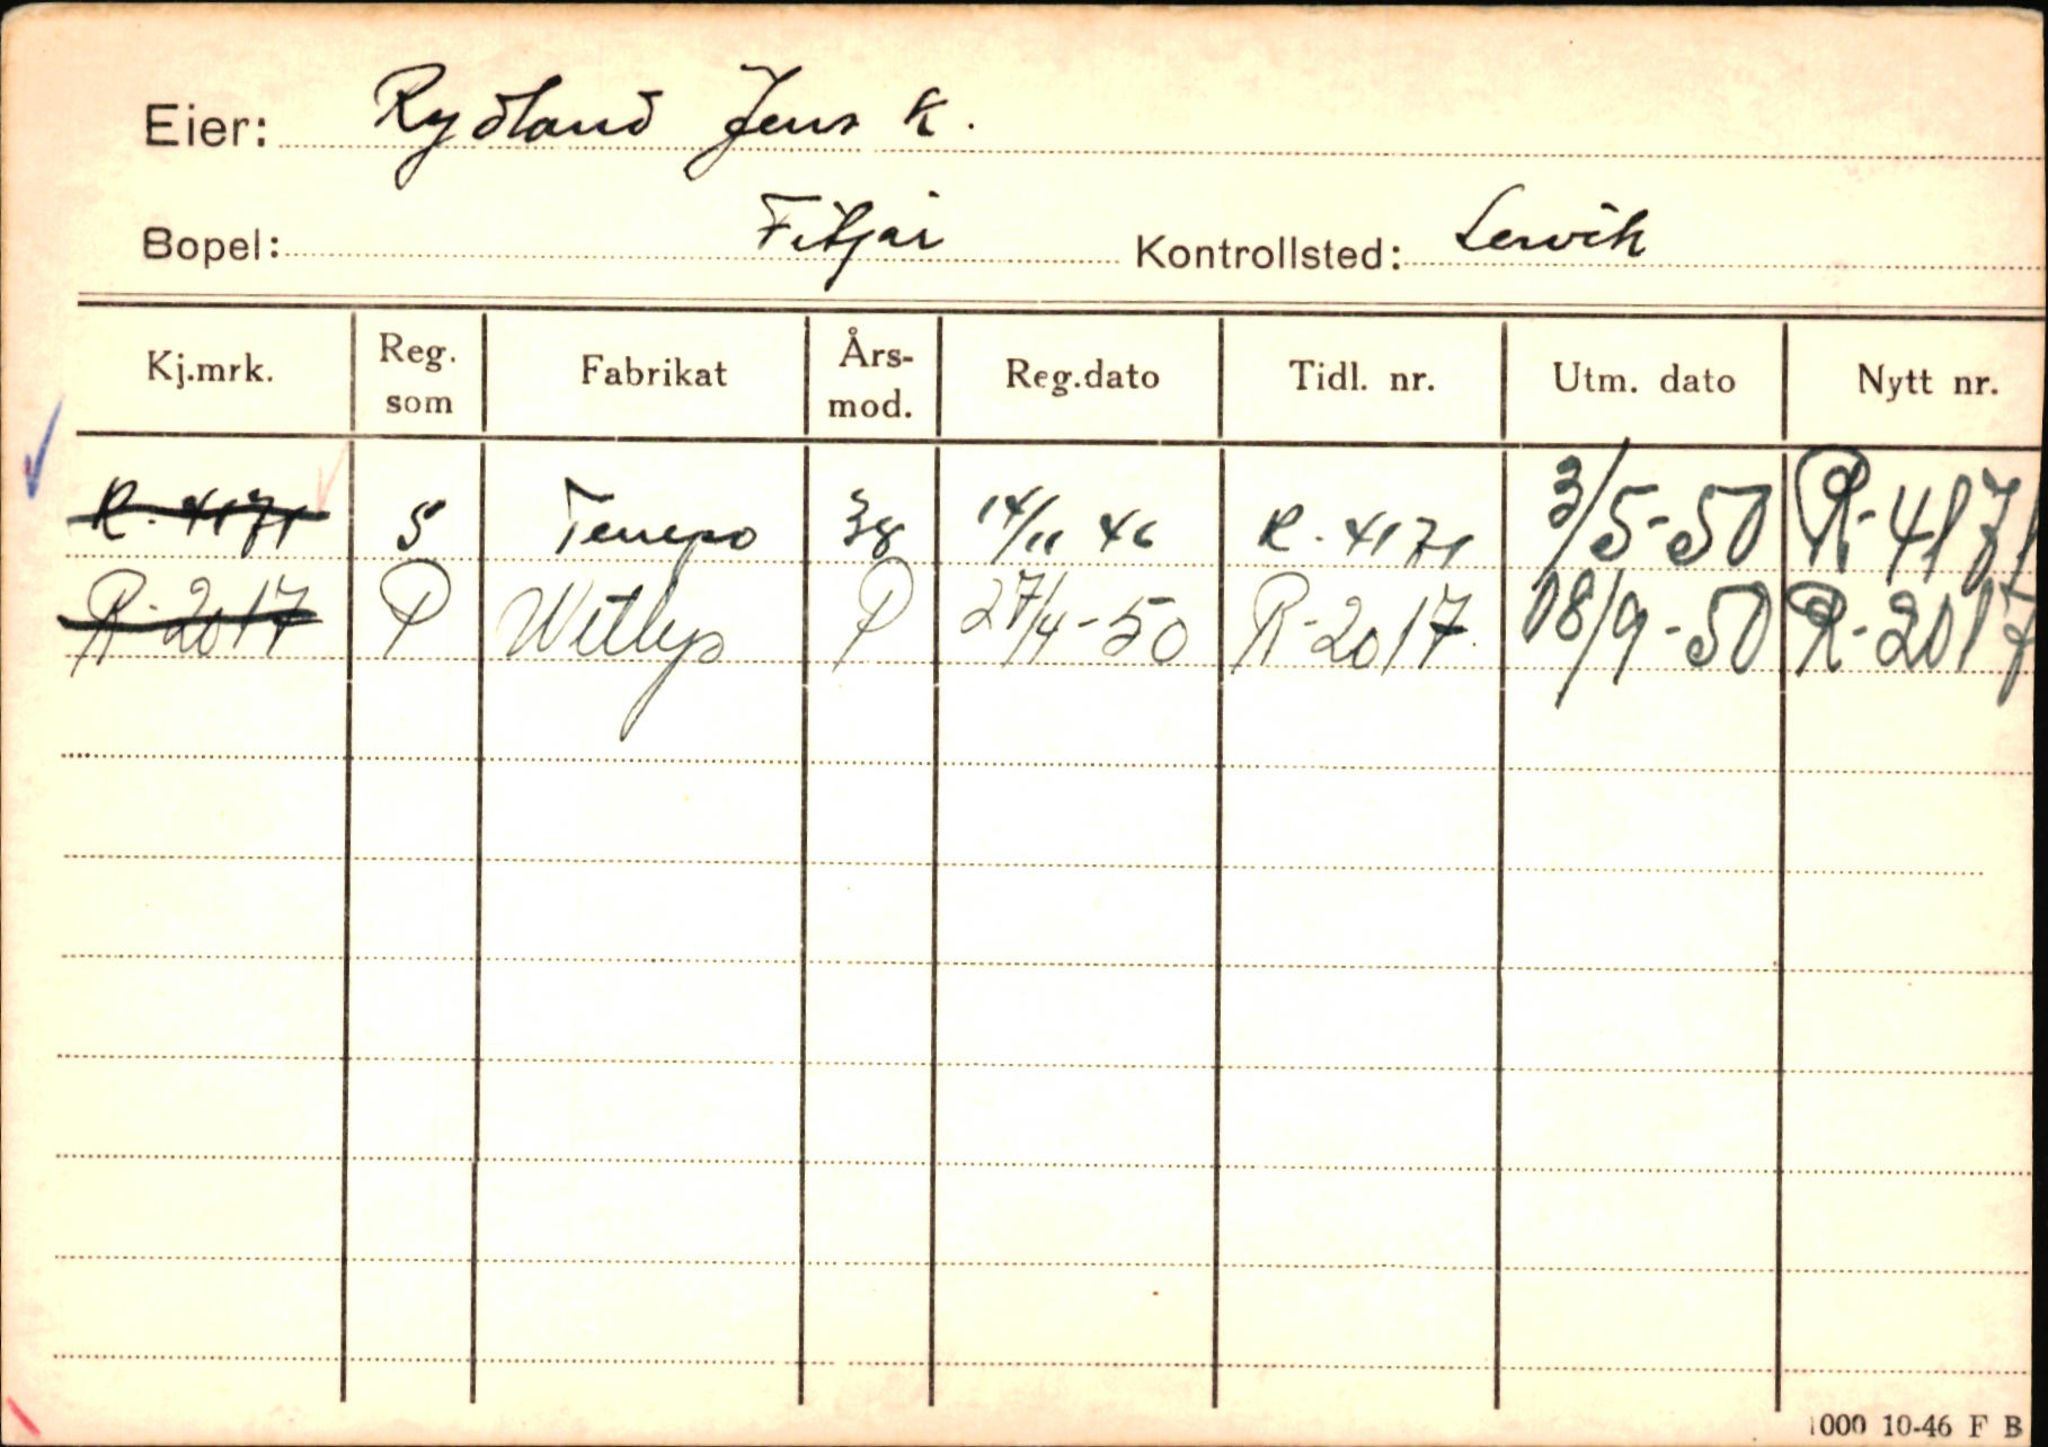 Eier: Rydland Jens K.
Bopel: Fitjar Kontrollsted: Lervik
Kj.mrk. Reg. som Fabrikat Års-mod. Reg.dato Tidl. nr. Utm. dato Nytt nr.
R. 4171 S Tempo 38 14/11 46 R. 4171 3/5-50 R-4171
R-2017 P Willys P 27/4-50 R-2017. 18/9-50 R-2017
1000 10-46 F B